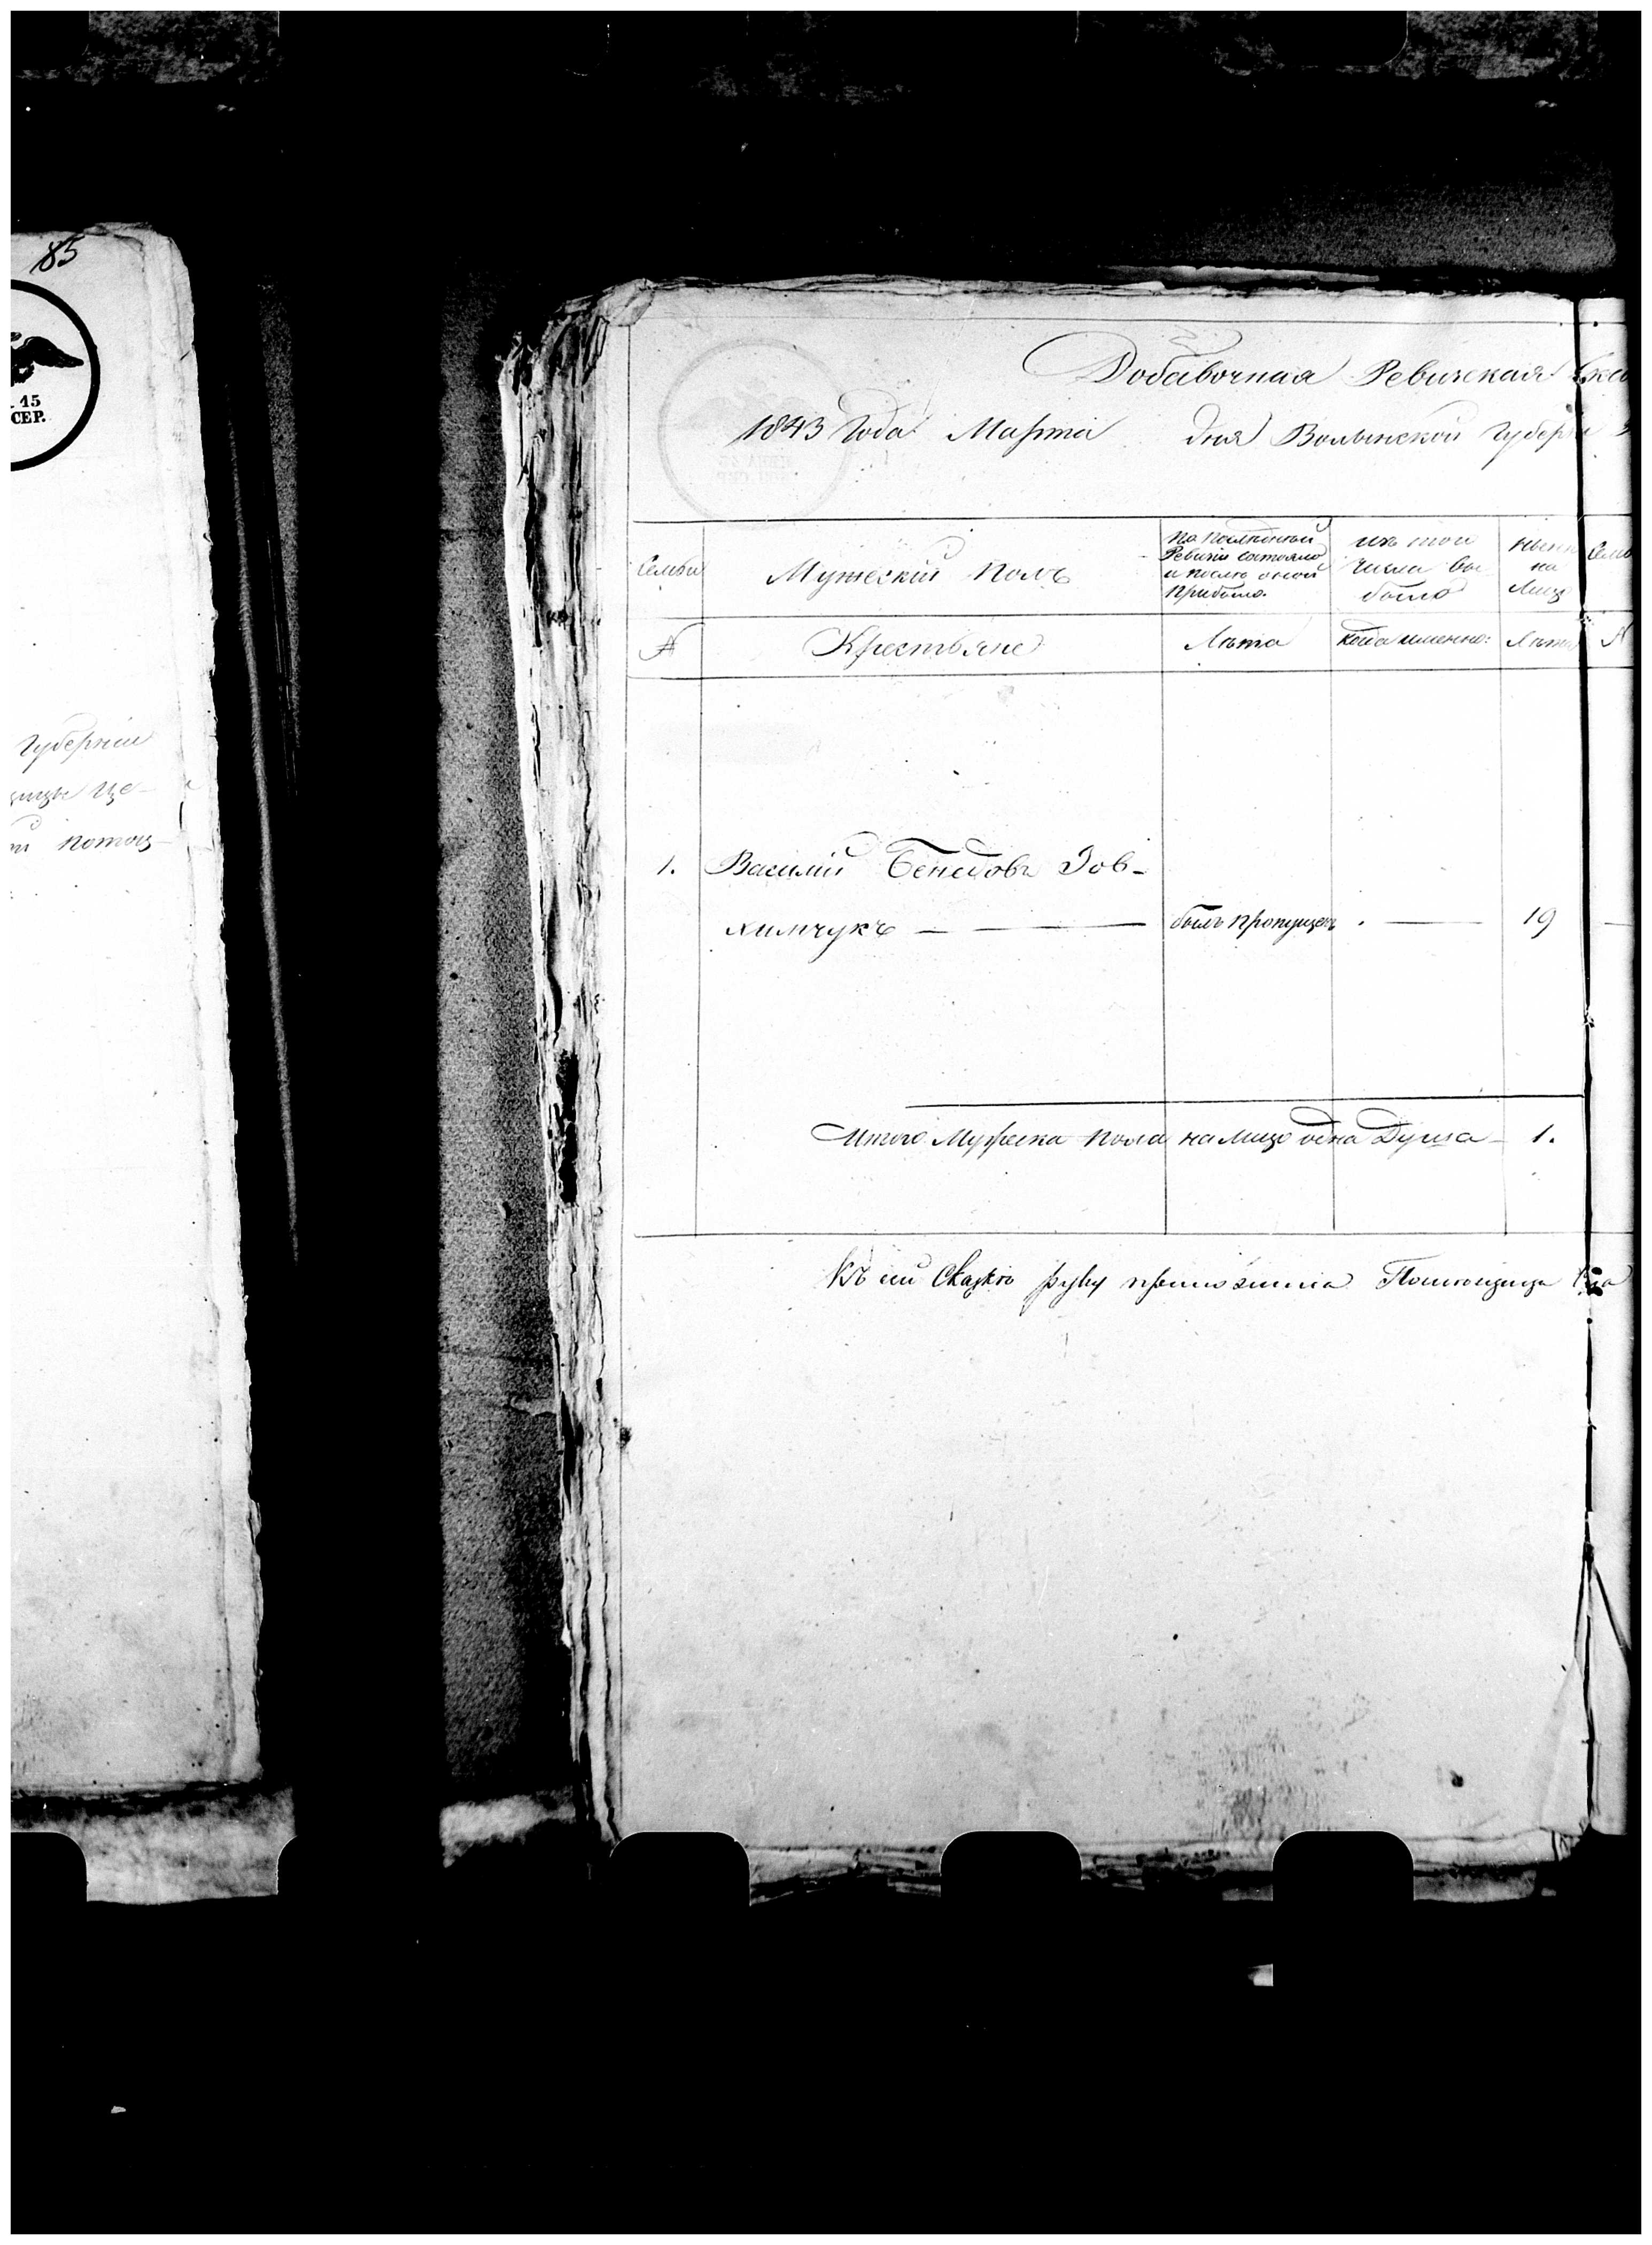 85
15
СЕР.
Губерніи
ницы Це-
потоц-
Добавочная Ревизская Ска
1843 Года Марта дня Волынской Губерн
Семьи
Мужескій Полъ
По Последней Ревизіи состояло и после оной Прибыло.
изъ того числа вы было
Ныне на Лицо
Семь
№
Крестьяне
Лета
когда именно:
Лета
№
1.
Василій Бенедовъ Іов-
химчукъ — — былъ пропущенъ . — 19
Итого Мужеска пола на лицо одна Душа 1.
Къ сей Сказке руку приложила Помещица